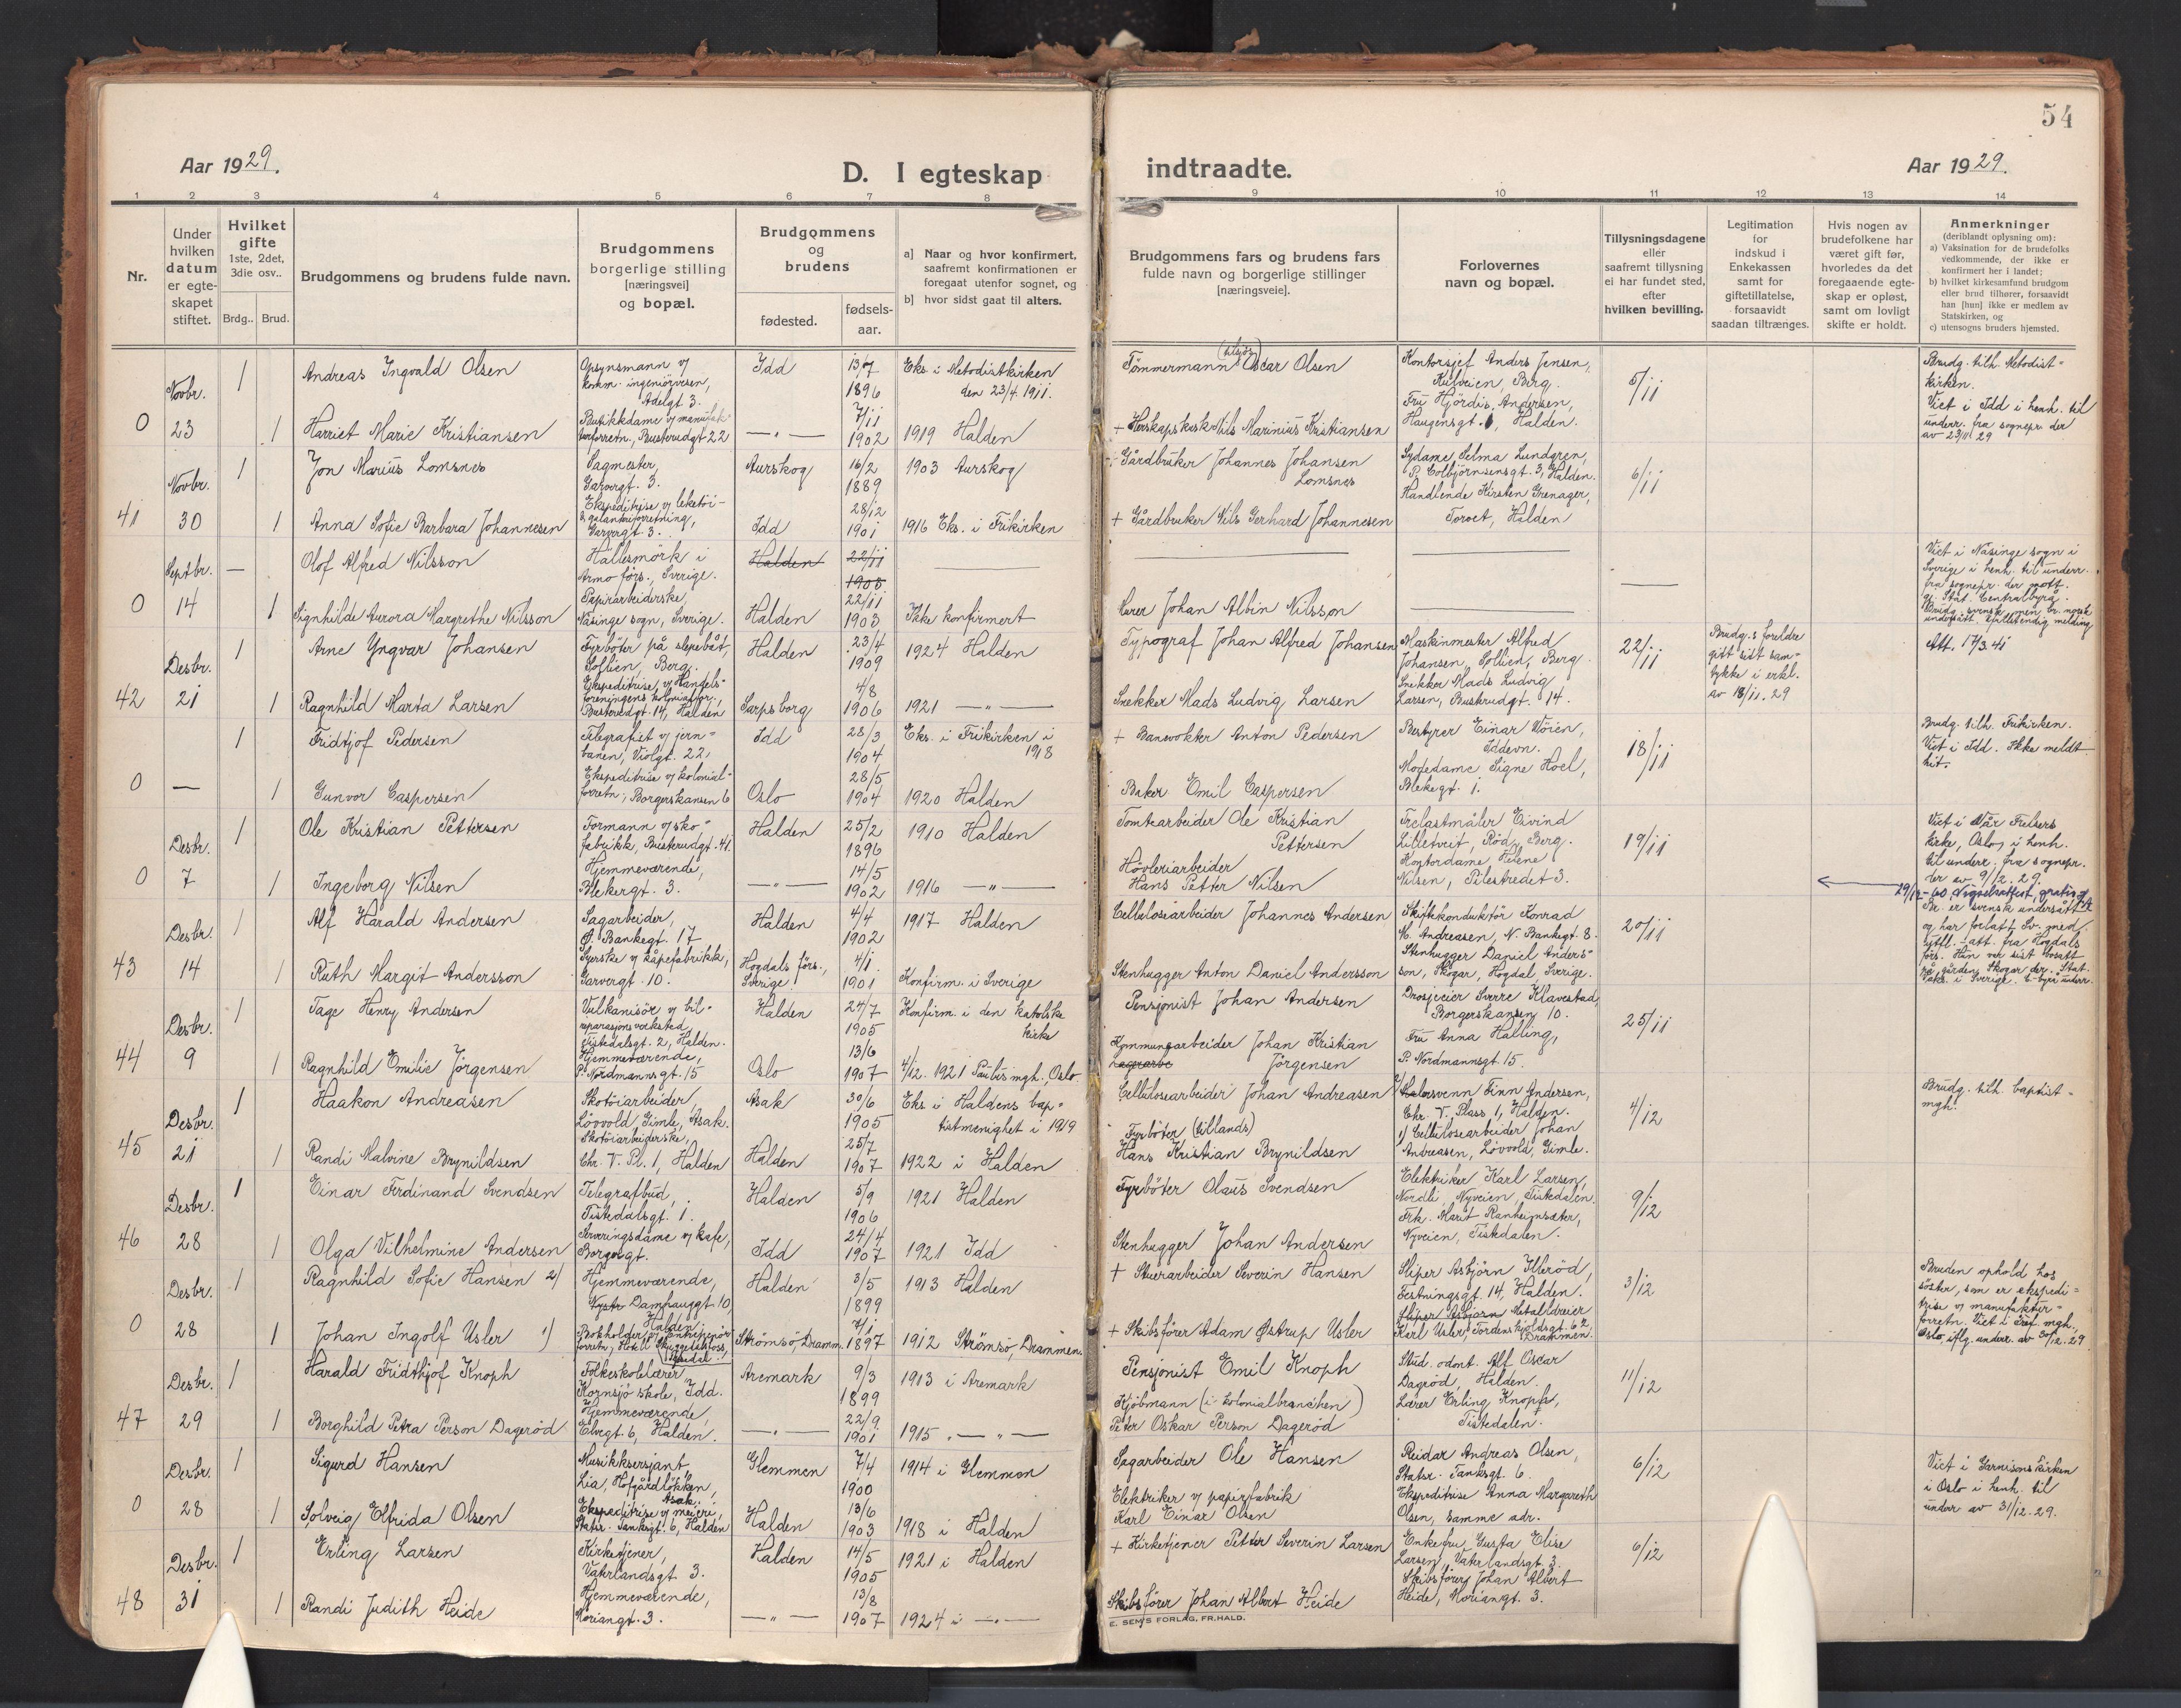 54
Aar 1929.
D. I egteskap
indtraadte.
Aar 1929.
1 2 3 4 5 6 7 8
9 10 11 12 13 14
Nr.
Under hvilken datum er egte-skapet stiftet.
Hvilket gifte 1ste, 2det, 3die osv..
Brdg.. Brud.
Brudgommens og brudens fulde navn.
Brudgommens borgerlige stilling [næringsvei] og bopæl.
Brudgommens og brudens
fødested.
fødsels-aar.
a] Naar og hvor konfirmert, saafremt konfirmationen er foregaat utenfor sognet, og
b] hvor sidst gaat til alters.
Brudgommens fars og brudens fars fulde navn og borgerlige stillinger [næringsveie].
Forlovernes navn og bopæl.
Tillysningsdagene eller saafremt tillysning ei har fundet sted, efter hvilken bevilling.
Legitimation for indskud i Enkekassen samt for giftetillatelse, forsaavidt saadan tiltrænges.
Hvis nogen av brudefolkene har været gift før, hvorledes da det foregaaende egte-skap er opløst, samt om lovligt skifte er holdt.
Anmerkninger (deriblandt oplysning om):
a) Vaksination for de brudefolks vedkommende, der ikke er konfirmert her i landet;
b) hvilket kirkesamfund brudgom eller brud tilhører, forsaavidt han [hun] ikke er medlem av Statskirken, og
c) utensogns bruders hjemsted.
0 Novbr. 23
1 Andreas Ingvald Olsen
Opsynsmann v/ komm. ingeniörvesen, Adelgt. 3.
Idd
13/7 1896
Eks. i Metodistkirken den 23/4 1911.
Tömmermann (tilsjös) Oscar Olsen
Kontorsjef Anders Jensen, Kulveien, Berg.
Fru Hjördis Andersen, Haugensgt. , Halden.
5/11
Brudg. tilh. Metodist-kirken.
Viet i Idd i henh. til underr. fra sognepr. der av 23/11 29
1 Harriet Marie Kristiansen
Butikkdame v/ manufak-turforretn., Busterudgt. 22
— " —
7/11 1902
1919 Halden
+ Nils Marinius Kristiansen
41 Novbr. 30
1 Jon Marius Lomsnes
Sagmester, Garvergt. 3.
Aurskog
16/2 1889
1903 Aurskog
Gårdbruker Johannes Johansen Lomsnes
Sydame Selma Lundgren, P. Colbjörnsensgt. 3, Halden.
Handlende Kirsten Grenager, Torvet, Halden
6/11
1 Anna Sofie Barbara Johannesen
Ekspeditrise v/ leketöi- & galanteriforretning, Garvergt 3.
Idd
28/12 1901
1916 Eks. i Frikirken
+ Gårdbruker Nils Gerhard Johannesen
0 Septbr. 14
— Olof Alfred Nilsson
Hällesmörk i Arno förs., Sverige.
Halden
22/11 1905
Viet i Näsinge sogn i Sverige i henh. til underr. fra sognepr. der mott. gj. Stat. Centralbyrå.
1 Signhilde Aurora Margrethe Nilsson
Papirarbeiderske, Näsinge sogn, Sverige.
Halden
22/11 1903
Ikke konfirmert
Murer Johan Albin Nilsson
42 Desbr. 21
1 Arne Yngvar Johansen
Fyrböter på slepebåt, Sollien, Berg.
Halden
23/4 1909
1924 Halden
Typograf Johan Alfred Johansen
Maskinmester Alfred Johansen, Sollien, Berg.
Snekker Mads Ludvig Larsen, Buskrudgt. 14.
22/11
Brudg.s foreldre gitt sitt sam-tykke i erkl. av 18/11. 29
Att. 17/3. 41
1 Ragnhild Marta Larsen
Ekspeditrise v/ Handels-foreningens kolonialfor., Busterudgt. 14, Halden
Sarpsborg
4/8 1906
1921 — " —
Snekker Mads Ludvig Larsen
0 —
1 Fridtjof Pedersen
Telegrafist v/ jern-banen, Violgt. 22.
Idd
28/3 1904
Eks. i Frikirken i 1918
+ Banevokter Anton Pedersen
Bestyrer Einar Wöien, Iddevn.
Motedame Signe Hoel, Blekegt. 1.
18/11
Brudg. tilh. Frikirken.
Viet i Idd. Ikke meldt hit.
1 Gunvor Caspersen
Ekspeditrise v/ kolonial-forretn., Borgerskansen 6
Oslo
28/5 1904
1920 Halden
Baker Emil Caspersen
0 Desbr. 7
1 Ole Kristian Pettersen
Formann v/ sko-fabrikk, Busterudgt. 41.
Halden
25/2 1896
1910 Halden
Tomtearbeider Ole Kristian Pettersen
Trelastmåler Eivind Lilletveit, Röd, Berg.
Kontordame Helene Nilsen, Pilestredet 3.
19/11
Viet i Vår Frelsers kirke, Oslo, i henh. til underr. fra sognepr. der av 9/12. 29.
1 Ingeborg Nilsen
Hjemmeværende, Blekergt. 3.
— " —
14/5 1902
1916 — " —
Hövleriarbeider Hans Petter Nilsen
29/12 - 60. Vigselsattest, gratis
43 Desbr. 14
1 Alf Harald Andersen
Sagarbeider, Ø. Bankegt. 17
Halden
4/4 1902
1917 Halden
Cellulosearbeider Johannes Andersen
Skiftekonduktör Konrad M. Andreasen, N. Bankegt. 8.
Stenhugger Daniel Anders-son, Skogar, Hogdal, Sverige.
20/11
Br. er svensk undersått og har forlatt Sv. med utfl.-att. fra Hogdals förs. Hun var sist bosatt på gården Skogar der. Stat. C-byrå underr.
Vaks. i Sverige.
1 Ruth Margit Andersson
Syerske v/ kåpefabrikk, Garvergt. 10.
Hogdals förs., Sverige
4/1 1901
Konfirm. i Sverige
Stenhugger Anton Daniel Andersson
44 Desbr. 9
1 Tage Henry Andersen
Vulkanisör v/ bil-reparasjonsverksted, Tistedalsgt. 2, Halden.
Halden
24/7 1905
Konfirm. i den katolske kirke
Pensjonist Johan Andersen
Drosjeeier Sverre Klavestad, Borgerskansen 10.
Fru Anna Halling, P. Nordmannsgt. 15.
25/11
1 Ragnhild Emilie Jörgensen
Hjemmeværende, P. Nordmannsgt. 15
Oslo
13/6 1907
4/12. 1921 Paulus mgh., Oslo
Kommunearbeider Johan Kristian Jörgensen
45 Desbr. 21
1 Haakon Andreasen
Skotöiarbeider, Lövvold, Gimle, Asak.
Asak
30/6 1905
Eks. i Haldens bap-tistmenighet i 1919
Cellulosearbeider Johan Andreasen
2) Malersvenn Finn Andersen, Chr. V. Plass 1, Halden.
1) Cellulosearbeider Johan Andreasen, Lövvold, Gimle.
4/12
Brudg. tilh. baptist-mgh.
1 Randi Malvine Brynildsen
Skotöiarbeiderske, Chr. V. Pl. 1, Halden
Halden
25/7 1907
1922 i Halden
Fyrböter (tillands) Hans Kristian Brynildsen
46 Desbr. 28
1 Einar Ferdinand Svendsen
Telegrafbud, Tistedalsgt. 1.
Halden
5/9 1906
1921 Halden
Fyrböter Olaus Svendsen
Elektriker Karl Larsen, Nordli, Nyveien, Tistedalen.
Frk. Marit Ranheimsæter, Nyveien, Tistedalen.
9/12
1 Olga Vilhelmine Andersen
Serveringsdame v/ kafe, Borgergt.
Idd
24/4 1907
1921 Idd
Stenhugger Johan Andersen
0 Desbr. 28
1 Ragnhild Sofie Hansen 2)
Hjemmeværende, Damhauggt. 10, Halden
Halden
3/5 1899
1913 Halden
+ Stuerarbeider Severin Hansen
Sliper Asbjörn Illeröd, Festningsgt. 14, Halden.
Sliper Asbjørn Metalldreier Karl Usler, Tordenskjoldsgt. 62, Drammen.
3/12
Bruden ophold hos söster, som er ekspedi-trise v/ manufaktur-forretn. Viet i Tref. mgh., Oslo, iflg. underr. av 30/12. 29
1 Johan Ingolf Usler 1)
Bokholder v/ entreprenör-forretn., Hotell
Strömsö, Dramm.
7/1 1897
1912 Strömsö, Drammen
+ Skibsförer Adam Østrup Usler
47 Desbr. 29
1 Harald Fridthjof Knoph
Folkeskolelærer, Kornsjö skole, Idd.
Aremark
9/3 1899
1913 i Aremark
Pensjonist Emil Knoph
Stud. odont. Alf Oscar Dageröd, Halden.
Lærer Erling Knoph, Tistedalen.
11/12
1 Borghild Petra Person Dageröd
Hjemmeværende, Elvegt. 6, Halden.
— " —
22/9 1901
1915 — " —
Kjöbmann (i kolonialbranchen) Peter Oskar Person Dageröd
0 Desbr. 28
1 Sigurd Hansen
Musikksersjant, Lia, Hofgårdlökken, Asak.
Glemmen
7/4 1900
1914 i Glemmen
Sagarbeider Ole Hansen
Reidar Andreas Olsen, Statsr. Tanksgt. 6.
Ekspeditrise Anna Margareth Olsen, samme adr.
6/12
Viet i Garnisonskirken i Oslo i henh. til underr av 31/12. 29.
1 Solveig Elfrida Olsen
Ekspeditrise v/ meieri, Statsr. Tanksgt. 6, Halden
Halden
13/6 1903
1918 i Halden
Elektriker v/ papirfabrik Karl Einar Olsen
48 Desbr. 31
1 Erling Larsen
Kirketjener, Vaterlandsgt 3.
Halden
14/5 1905
1921 i Halden
+ Kirketjener Petter Severin Larsen
Enkefru Gusta Elise Larsen, Vaterlandsgt. 3.
Skibsförer Johan Albert Heide, Moriangt. 3.
6/12
1 Randi Judith Heide
Hjemmeværende, Moriangt. 3.
— " —
13/8 1907
1924 i — " —
Skibsförer Johan Albert Heide
E. SEM'S FORLAG, FR.HALD.